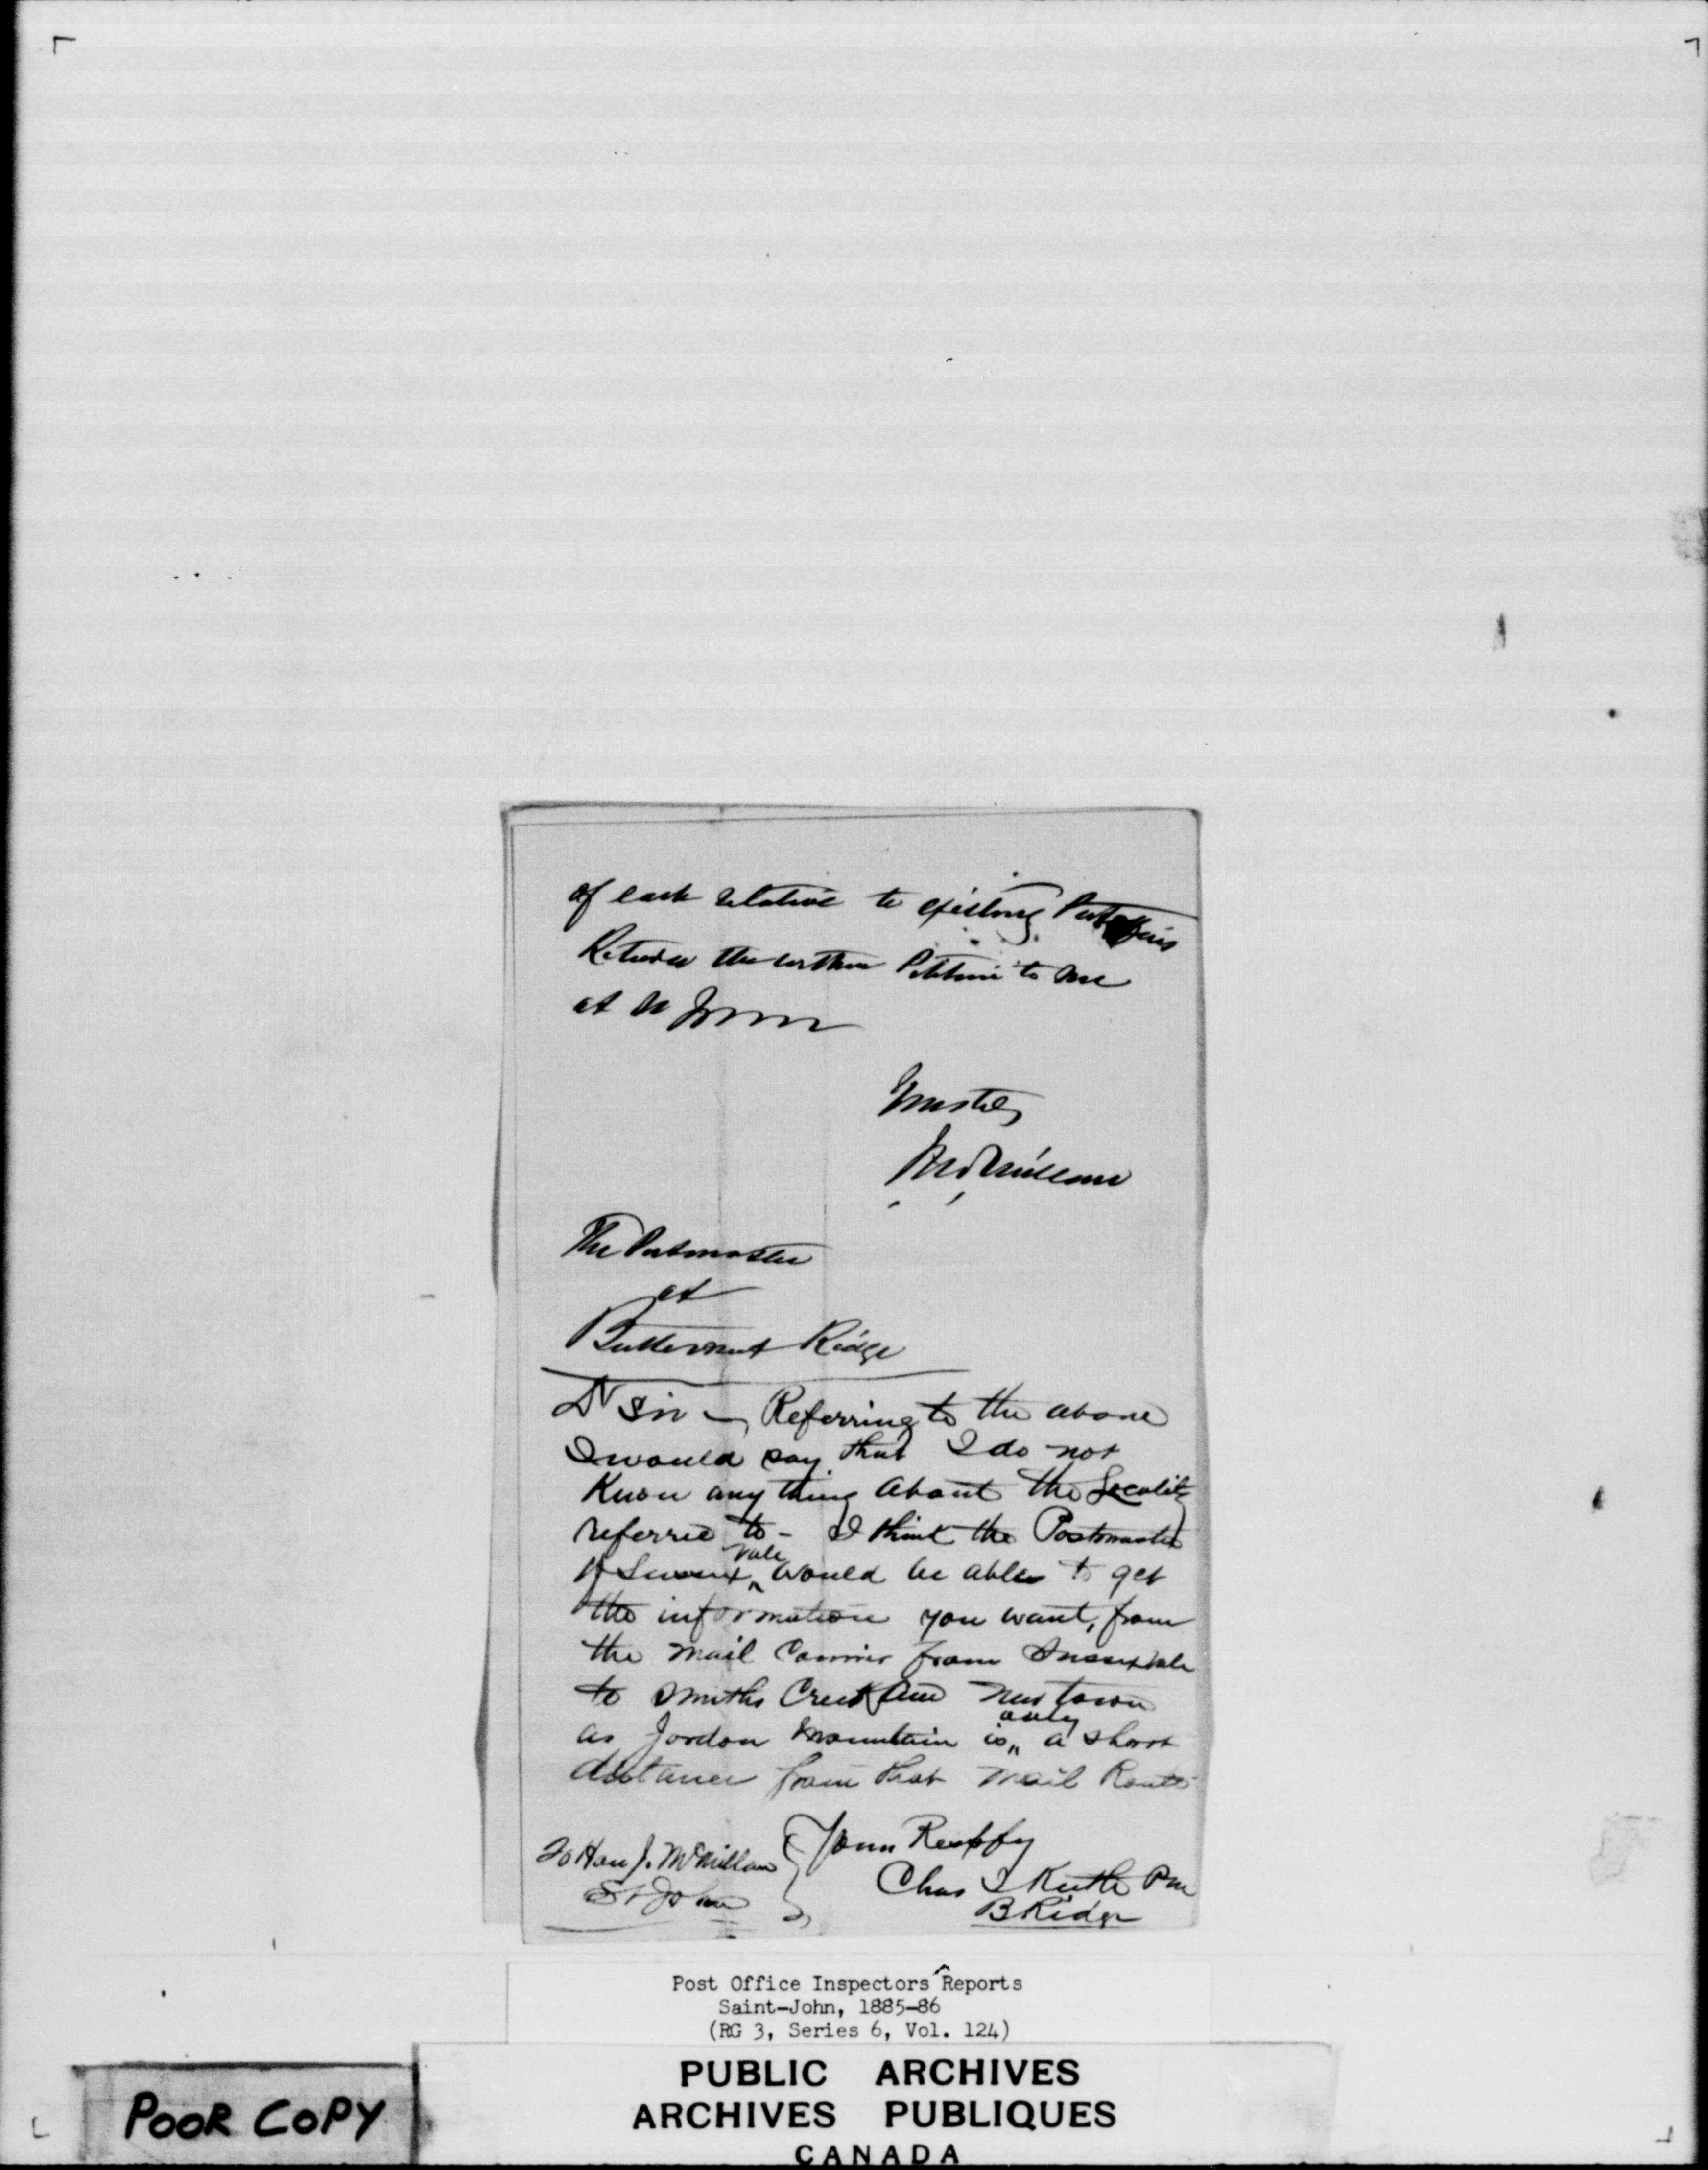 of each relative to existing Post Offices
Return the within Petition to me
at St John
Yours truly
J McMillan
The Postmaster
at
Butternut Ridge
Dr Sir – Referring to the above
I would say that I do not
Know any thing about the Locality
referred to – I think the Postmaster
of Sussex Vale would be able to get
the information you want, from
the mail Courier from Sussex Vale
to Smiths Creek and Newtown
as Jordon Mountain is only a short
distance from that Mail Route
To Hon J. McMillan
St John
Yours Respfy
Chas I Keith Pm
B Ridge
Post Office Inspectors^Reports
Saint-John, 1885-86
(RG 3, Series 6, Vol. 124)
PUBLIC ARCHIVES
ARCHIVES PUBLIQUES
CANADA
POOR COPY